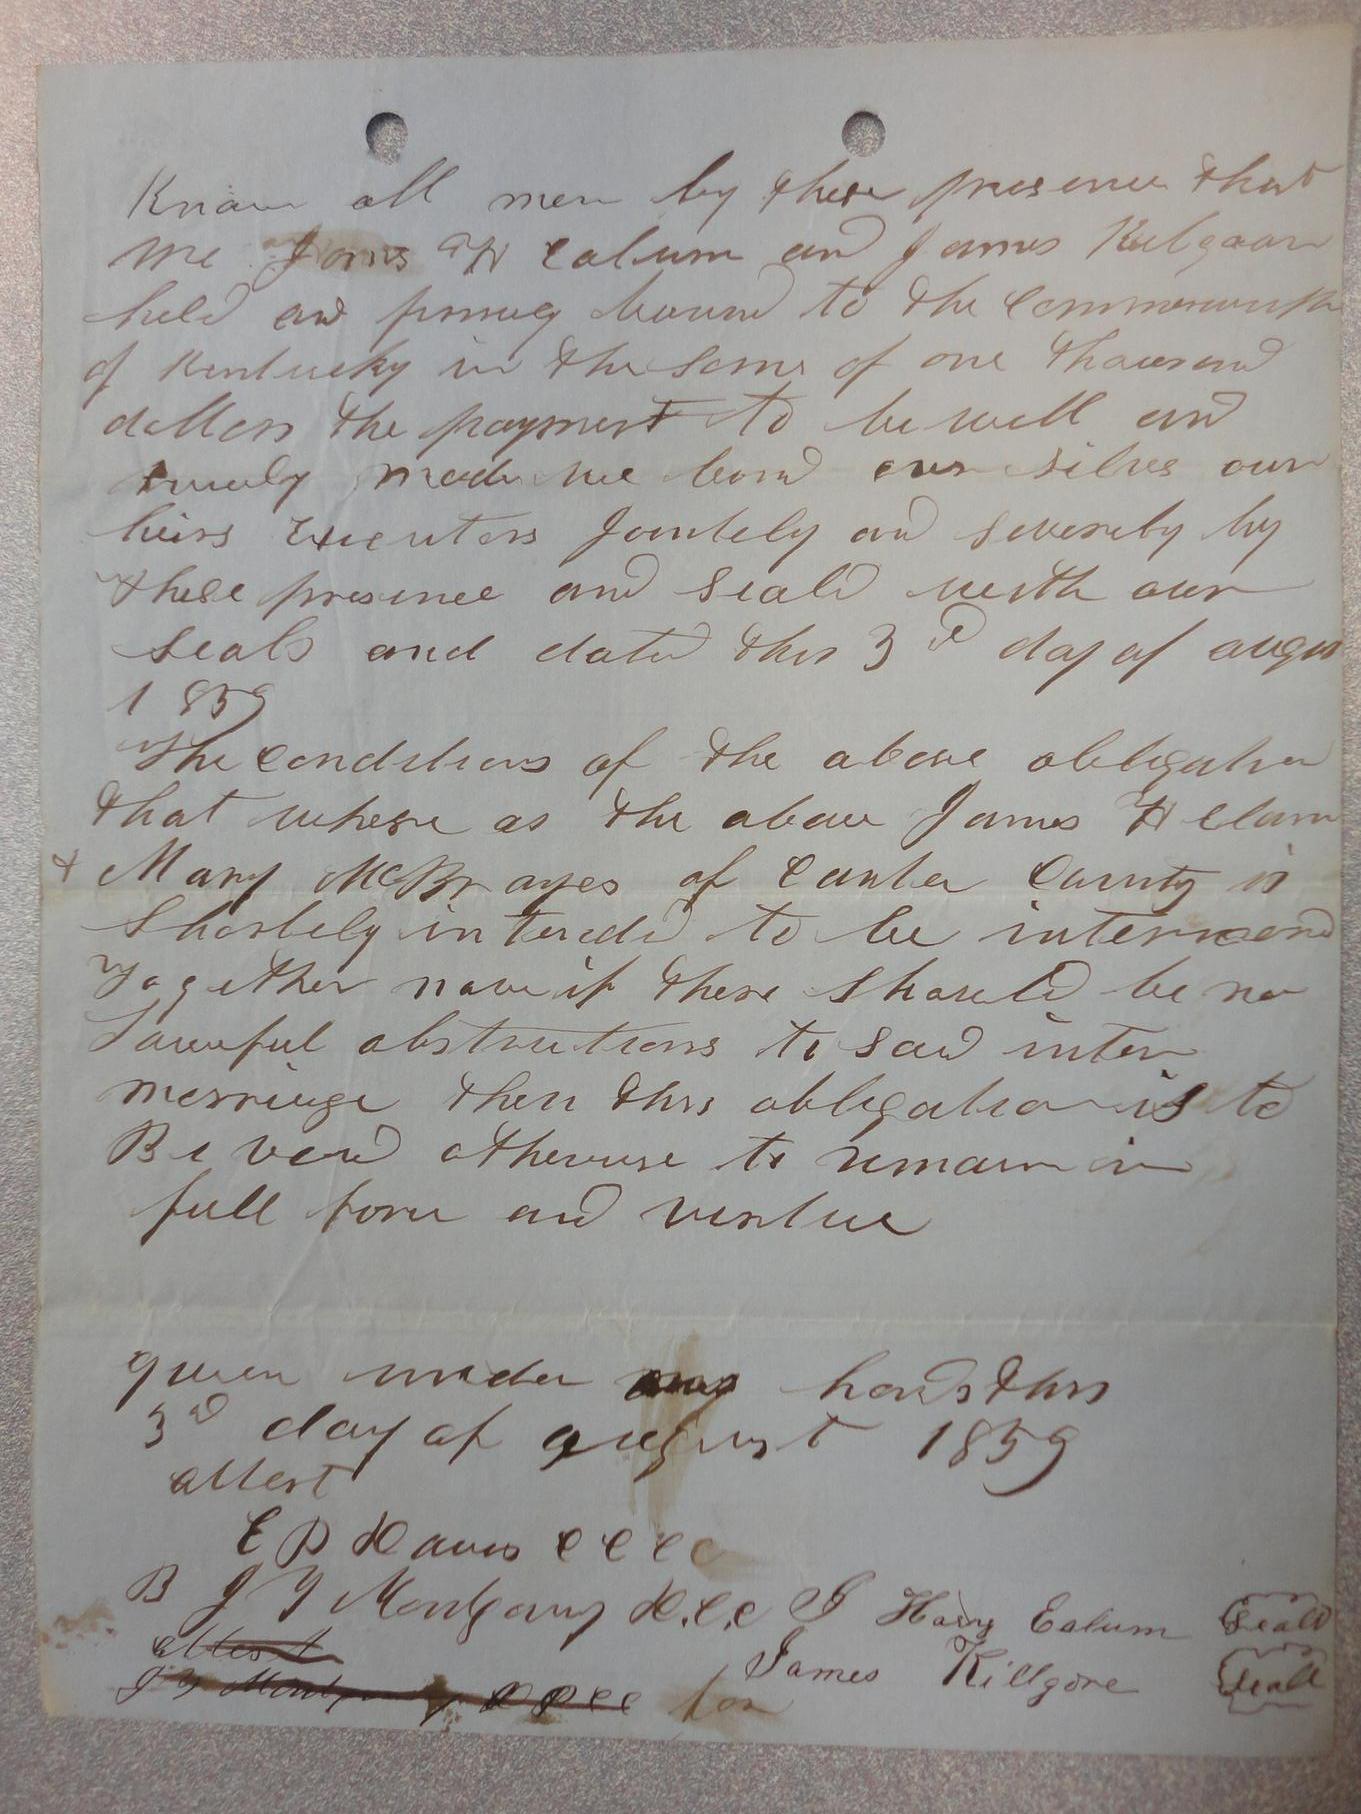 Know all men by these presence that
We James H Ealum and James Kilgoar
held and firmly bound to the Commonwealth
of Kentucky in the Some of one thousand
dollars the payment to be well and
truely made we bond our selves our
heirs Executors Jointely and severely by
these presence and Seald with our
seals and dated this 3d day of augst
1859
The Conditions of the above obligation
that where as the above James H Elam
& Mary McBrayes of Carter County is
Shortely intended to be
Together now if there should be no
Lawful obstructions to said inter
merriage then this obligation is to
Be void otherwise to remain in
full force and vertue
given under my hands this
3d day of august 1859
attest
E D Davis C C C C
B J Y Montgomry D.C.C J Harvy Ealum Seald
attest
James Killgore Seald
J Y Montgomry D C C C for